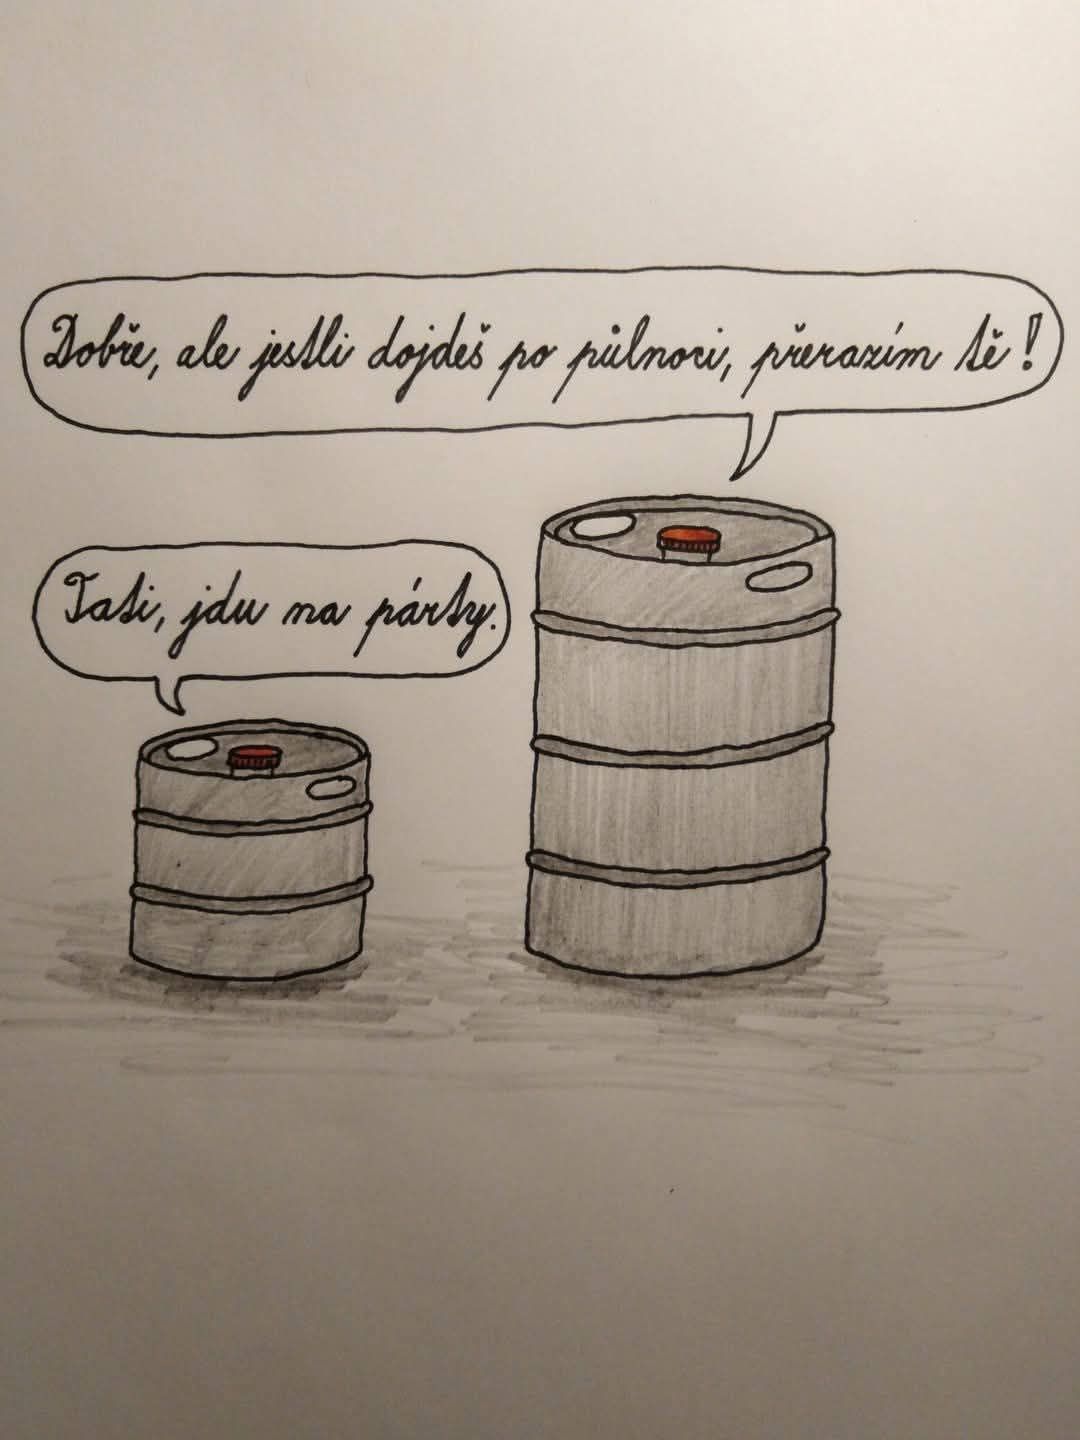 Dobře, ale jestli dojdeš po půlnoci, přerazím tě!
Tati, jdu na párty.